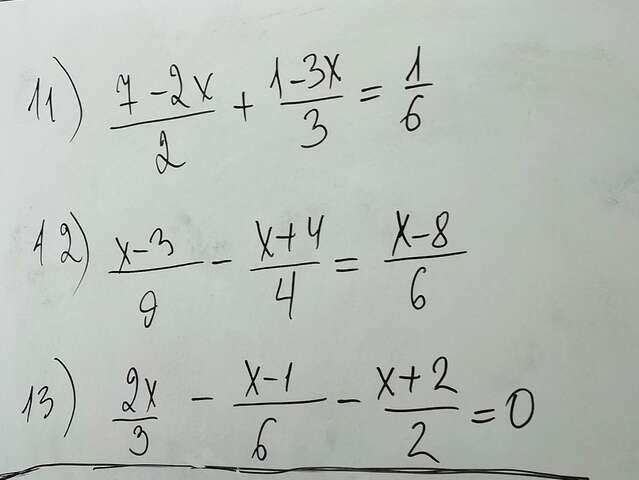 11) (7-2x)/2 + (1-3x)/3 = 1/6
12) (x-3)/9 - (x+4)/4 = (x-8)/6
13) 2x/3 - (x-1)/6 - (x+2)/2 = 0